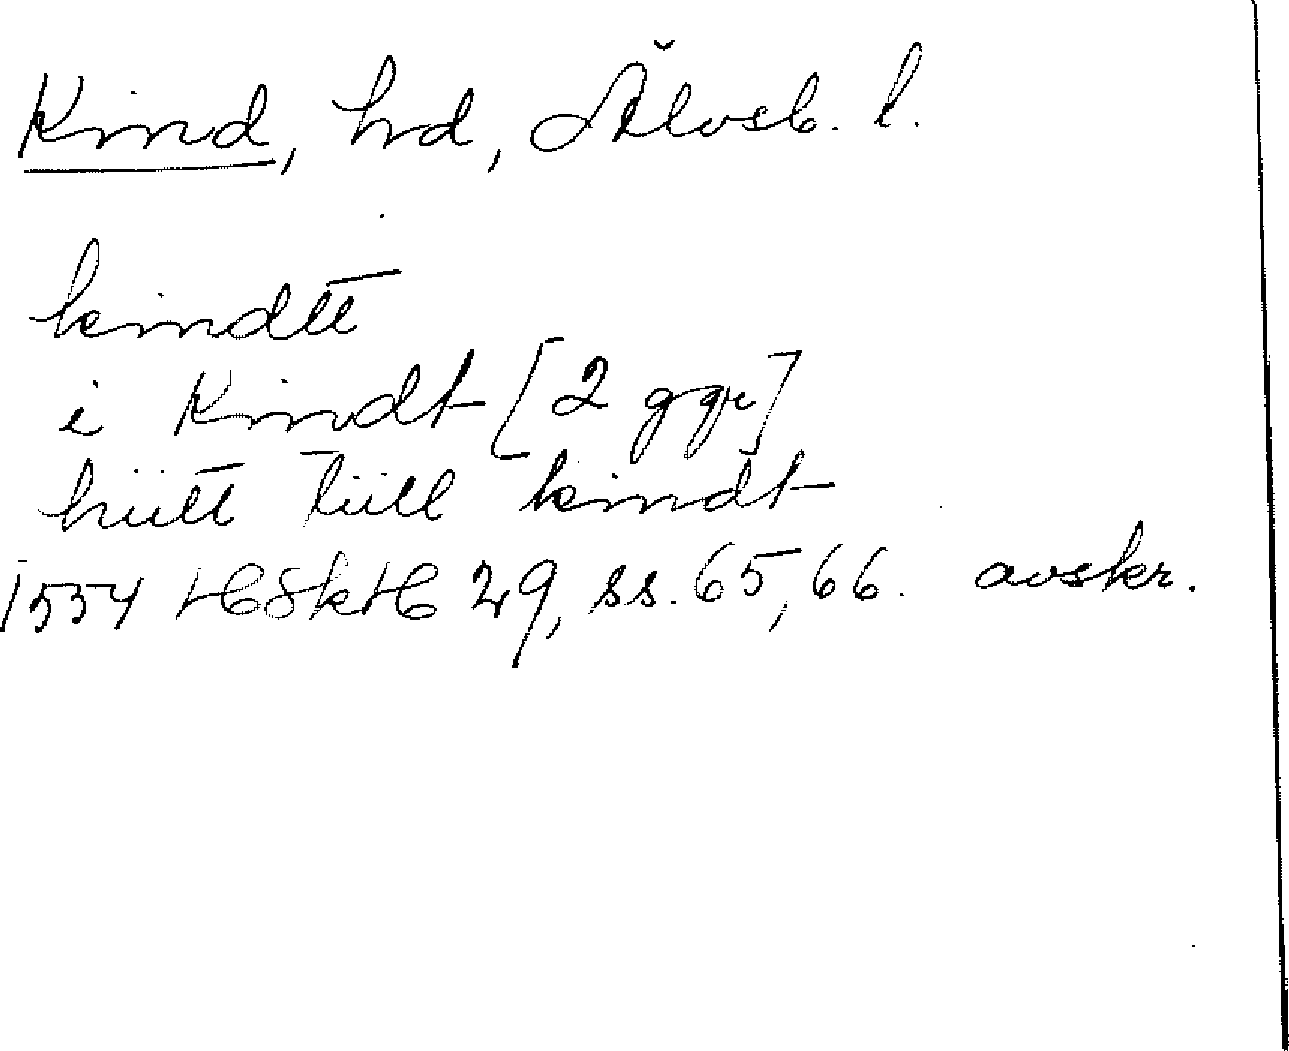 Kind, hd, Älvsb. l.
kindtt
i Kindt [2 ggr]
hiitt tiill kindt
1554 HSkH 29, ss. 65, 66. avskr.